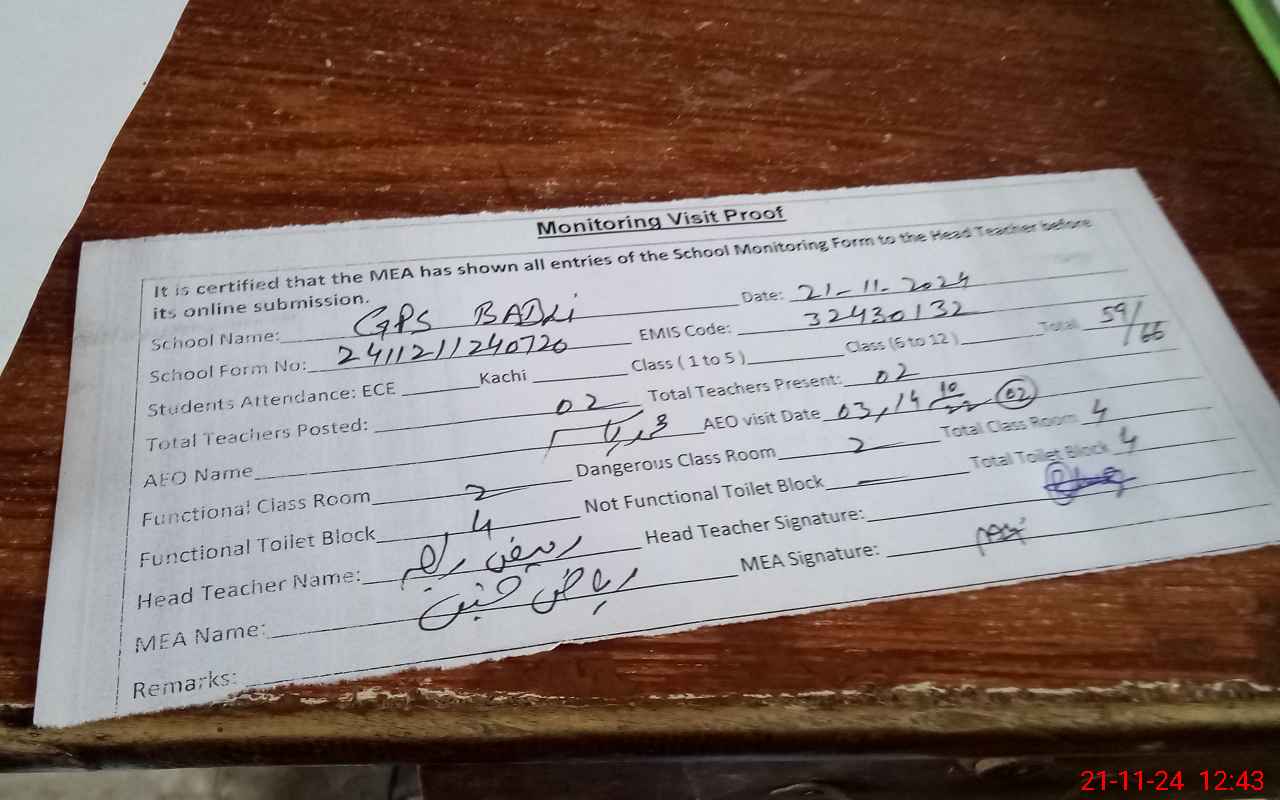 Monitoring Visit Proof
It is certified that the MEA has shown all entries of the School Monitoring Form to the Head Teacher before
its online submission.
School Name: GPS BADLi Date: 21-11-2024
School Form No: 2411211240720 EMIS Code: 32430132
Students Attendance: ECE Kachi Class ( 1 to 5 ) Class (6 to 12 ) Total 59/66
Total Teachers Posted: 02 Total Teachers Present: 02
AEO Name AEO visit Date 03, 14 10 02
Functional Class Room 2 Dangerous Class Room 2 Total Class Room 4
Functional Toilet Block 4 Not Functional Toilet Block — Total Toilet Block 4
Head Teacher Name: Head Teacher Signature:
MEA Name: ریاض MEA Signature:
Remarks:
21-11-24 12:43